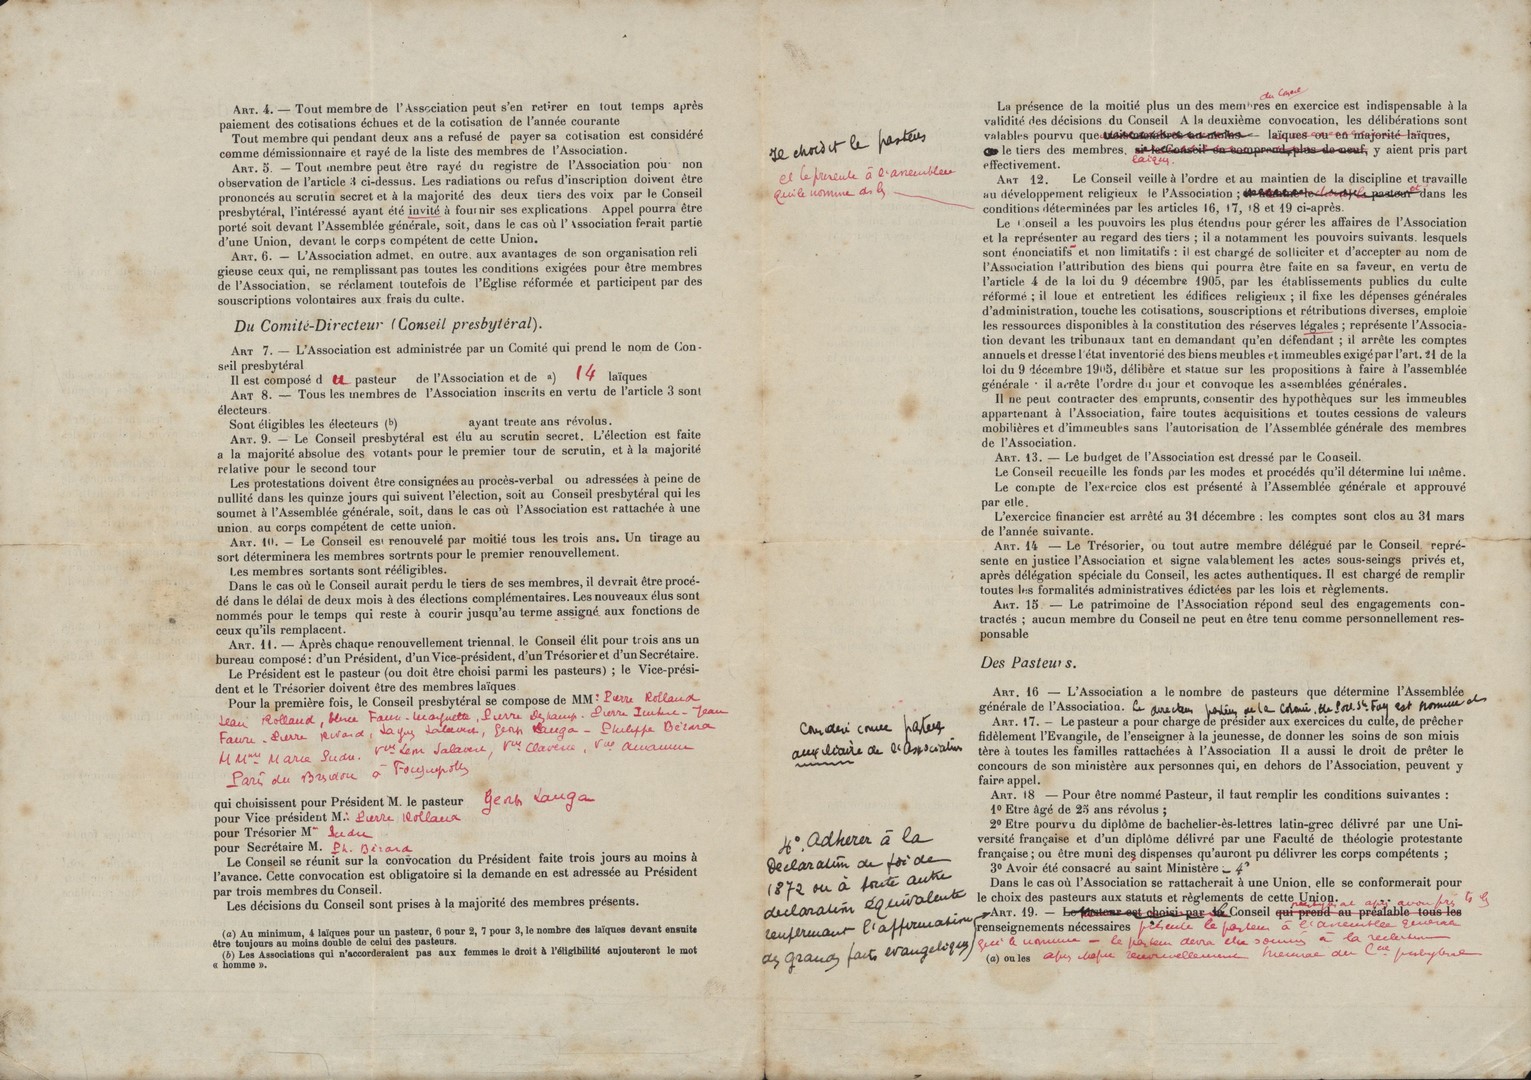 ART. 4. — Tout membre de l'Association peut s'en retirer en tout temps après
paiement des cotisations échues et de la cotisation de l'année courante
Tout membre qui pendant deux ans a refusé de payer sa cotisation est considéré
comme démissionnaire et rayé de la liste des membres de l'Association.
ART. 5. — Tout membre peut être rayé du registre de l'Association pour non
observation de l'article 3 ci-dessus. Les radiations ou refus d'inscription doivent être
prononcés au scrutin secret et à la majorité des deux tiers des voix par le Conseil
presbytéral, l'intéressé ayant été invité à fournir ses explications. Appel pourra être
porté soit devant l'Assemblée générale, soit, dans le cas où l'Association ferait partie
d'une Union, devant le corps compétent de cette Union.
ART. 6. — L'Association admet, en outre, aux avantages de son organisation reli
gieuse ceux qui, ne remplissant pas toutes les conditions exigées pour être membres
de l'Association, se réclament toutefois de l'Eglise réformée et participent par des
souscriptions volontaires aux frais du culte.
Du Comité-Directeur (Conseil presbytéral).
ART 7. — L'Association est administrée par un Comité qui prend le nom de Con-
seil presbytéral
Il est composé d'un pasteur de l'Association et de a) 14 laïques
ART 8. — Tous les membres de l'Association inscrits en vertu de l'article 3 sont
électeurs.
Sont éligibles les électeurs (b) ayant trente ans révolus.
ART. 9. — Le Conseil presbytéral est élu au scrutin secret. L'élection est faite
a la majorité absolue des votants pour le premier tour de scrutin, et à la majorité
relative pour le second tour
Les protestations doivent être consignées au procès-verbal ou adressées à peine de
nullité dans les quinze jours qui suivent l'élection, soit au Conseil presbytéral qui les
soumet à l'Assemblée générale, soit, dans le cas où l'Association est rattachée à une
union, au corps compétent de cette union.
ART. 10. — Le Conseil est renouvelé par moitié tous les trois ans. Un tirage au
sort déterminera les membres sortrnts pour le premier renouvellement.
Les membres sortants sont rééligibles.
Dans le cas où le Conseil aurait perdu le tiers de ses membres, il devrait être procé-
dé dans le délai de deux mois à des élections complémentaires. Les nouveaux élus sont
nommés pour le temps qui reste à courir jusqu'au terme assigné aux fonctions de
ceux qu'ils remplacent.
ART. 11. — Après chaque renouvellement triennal, le Conseil élit pour trois ans un
bureau composé: d'un Président, d'un Vice-président, d'un Trésorier et d'un Secrétaire.
Le Président est le pasteur (ou doit être choisi parmi les pasteurs) ; le Vice-prési-
dent et le Trésorier doivent être des membres laïques
Pour la première fois, le Conseil presbytéral se compose de MM: Pierre Rolland
Jean Rolland, Faure-Marquette, Pierre Pierre Jean
Faure - Pierre Rivard, Salavere, Georges Langa - Philippe Bérard
M Mmes Marie Sudre, Vve Léon Salavere, Vve Claverie, Vve
à
qui choisissent pour Président M. le pasteur Georges Langa
pour Vice président M. Pierre Rolland
pour Trésorier M Sudre
pour Secrétaire M. Ph. Bérard
Le Conseil se réunit sur la convocation du Président faite trois jours au moins à
l'avance. Cette convocation est obligatoire si la demande en est adressée au Président
par trois membres du Conseil.
Les décisions du Conseil sont prises à la majorité des membres présents.
(a) Au minimum, 4 laïques pour un pasteur, 6 pour 2, 7 pour 3, le nombre des laïques devant ensuite
être toujours au moins double de celui des pasteurs.
(b) Les Associations qui n'accorderaient pas aux femmes le droit à l'éligibilité aujouteront le mot
« homme ».
du Conseil
La présence de la moitié plus un des membres en exercice est indispensable à la
validité des décisions du Conseil A la deuxième convocation, les délibérations sont
valables pourvu que laïques ou en majorité laïques,
le tiers des membres, si le Conseil en comprend plus de neuf, y aient pris part
laïques.
effectivement.
ART 12. Le Conseil veille à l'ordre et au maintien de la discipline et travaille
au développement religieux de l'Association ; dans les
conditions déterminées par les articles 16, 17, 18 et 19 ci-après.
Il choisit le pasteur
et le présente à l'assemblée
qui le nomme
Le Conseil a les pouvoirs les plus étendus pour gérer les affaires de l'Association
et la représenter au regard des tiers ; il a notamment les pouvoirs suivants, lesquels
sont énonciatifs et non limitatifs : il est chargé de solliciter et d'accepter au nom de
l'Association l'attribution des biens qui pourra être faite en sa faveur, en vertu de
l'article 4 de la loi du 9 décembre 1905, par les établissements publics du culte
réformé ; il loue et entretient les édifices religieux ; il fixe les dépenses générales
d'administration, touche les cotisations, souscriptions et rétributions diverses, emploie
les ressources disponibles à la constitution des réserves légales ; représente l'Associa-
tion devant les tribunaux tant en demandant qu'en défendant ; il arrête les comptes
annuels et dresse l'état inventorié des biens meubles et immeubles exigé par l'art. 21 de la
loi du 9 décembre 1905, délibère et statue sur les propositions à faire à l'assemblée
générale · il arrête l'ordre du jour et convoque les assemblées générales.
Il ne peut contracter des emprunts, consentir des hypothèques sur les immeubles
appartenant à l'Association, faire toutes acquisitions et toutes cessions de valeurs
mobilières et d'immeubles sans l'autorisation de l'Assemblée générale des membres
de l'Association.
ART. 13. — Le budget de l'Association est dressé par le Conseil.
Le Conseil recueille les fonds par les modes et procédés qu'il détermine lui même.
Le compte de l'exercice clos est présenté à l'Assemblée générale et approuvé
par elle.
L'exercice financier est arrêté au 31 décembre ; les comptes sont clos au 31 mars
de l'année suivante.
ART. 14 — Le Trésorier, ou tout autre membre délégué par le Conseil, repré-
sente en justice l'Association et signe valablement les actes sous-seings privés et,
après délégation spéciale du Conseil, les actes authentiques. Il est chargé de remplir
toutes les formalités administratives édictées par les lois et règlements.
ART. 15 — Le patrimoine de l'Association répond seul des engagements con-
tractés ; aucun membre du Conseil ne peut en être tenu comme personnellement res-
ponsable
Des Pasteurs.
ART. 16 — L'Association a le nombre de pasteurs que détermine l'Assemblée
générale de l'Association. Le directeur pasteur de la Colonie de Ste Foy est nommé
Considéré comme pasteur
auxiliaire de l'association
ART. 17. — Le pasteur a pour charge de présider aux exercices du culte, de prêcher
fidèlement l'Evangile, de l'enseigner à la jeunesse, de donner les soins de son minis
tère à toutes les familles rattachées à l'Association Il a aussi le droit de prêter le
concours de son ministère aux personnes qui, en dehors de l'Association, peuvent y
faire appel.
ART. 18 — Pour être nommé Pasteur, il faut remplir les conditions suivantes :
1º Etre âgé de 25 ans révolus ;
2º Etre pourvu du diplôme de bachelier-ès-lettres latin-grec délivré par une Uni-
versité française et d'un diplôme délivré par une Faculté de théologie protestante
française ; ou être muni des dispenses qu'auront pu délivrer les corps compétents ;
3º Avoir été consacré au saint Ministère — 4º
4º. Adhérer à la
Déclaration de foi de
1872 ou à toute autre
déclaration équivalente
renfermant l'affirmation
des grands faits évangéliques
Dans le cas où l'Association se rattacherait à une Union, elle se conformerait pour
le choix des pasteurs aux statuts et règlements de cette Union.
presbytéral après avoir pris ts les
ART. 19. — Le pasteur est choisi par le Conseil qui prend au préalable tous les
renseignements nécessaires présente le pasteur à l'assemblée générale
qui le nomme — le pasteur devra être soumis à la réélection
(a) ou les après chaque renouvellement triennal du Cel presbytéral